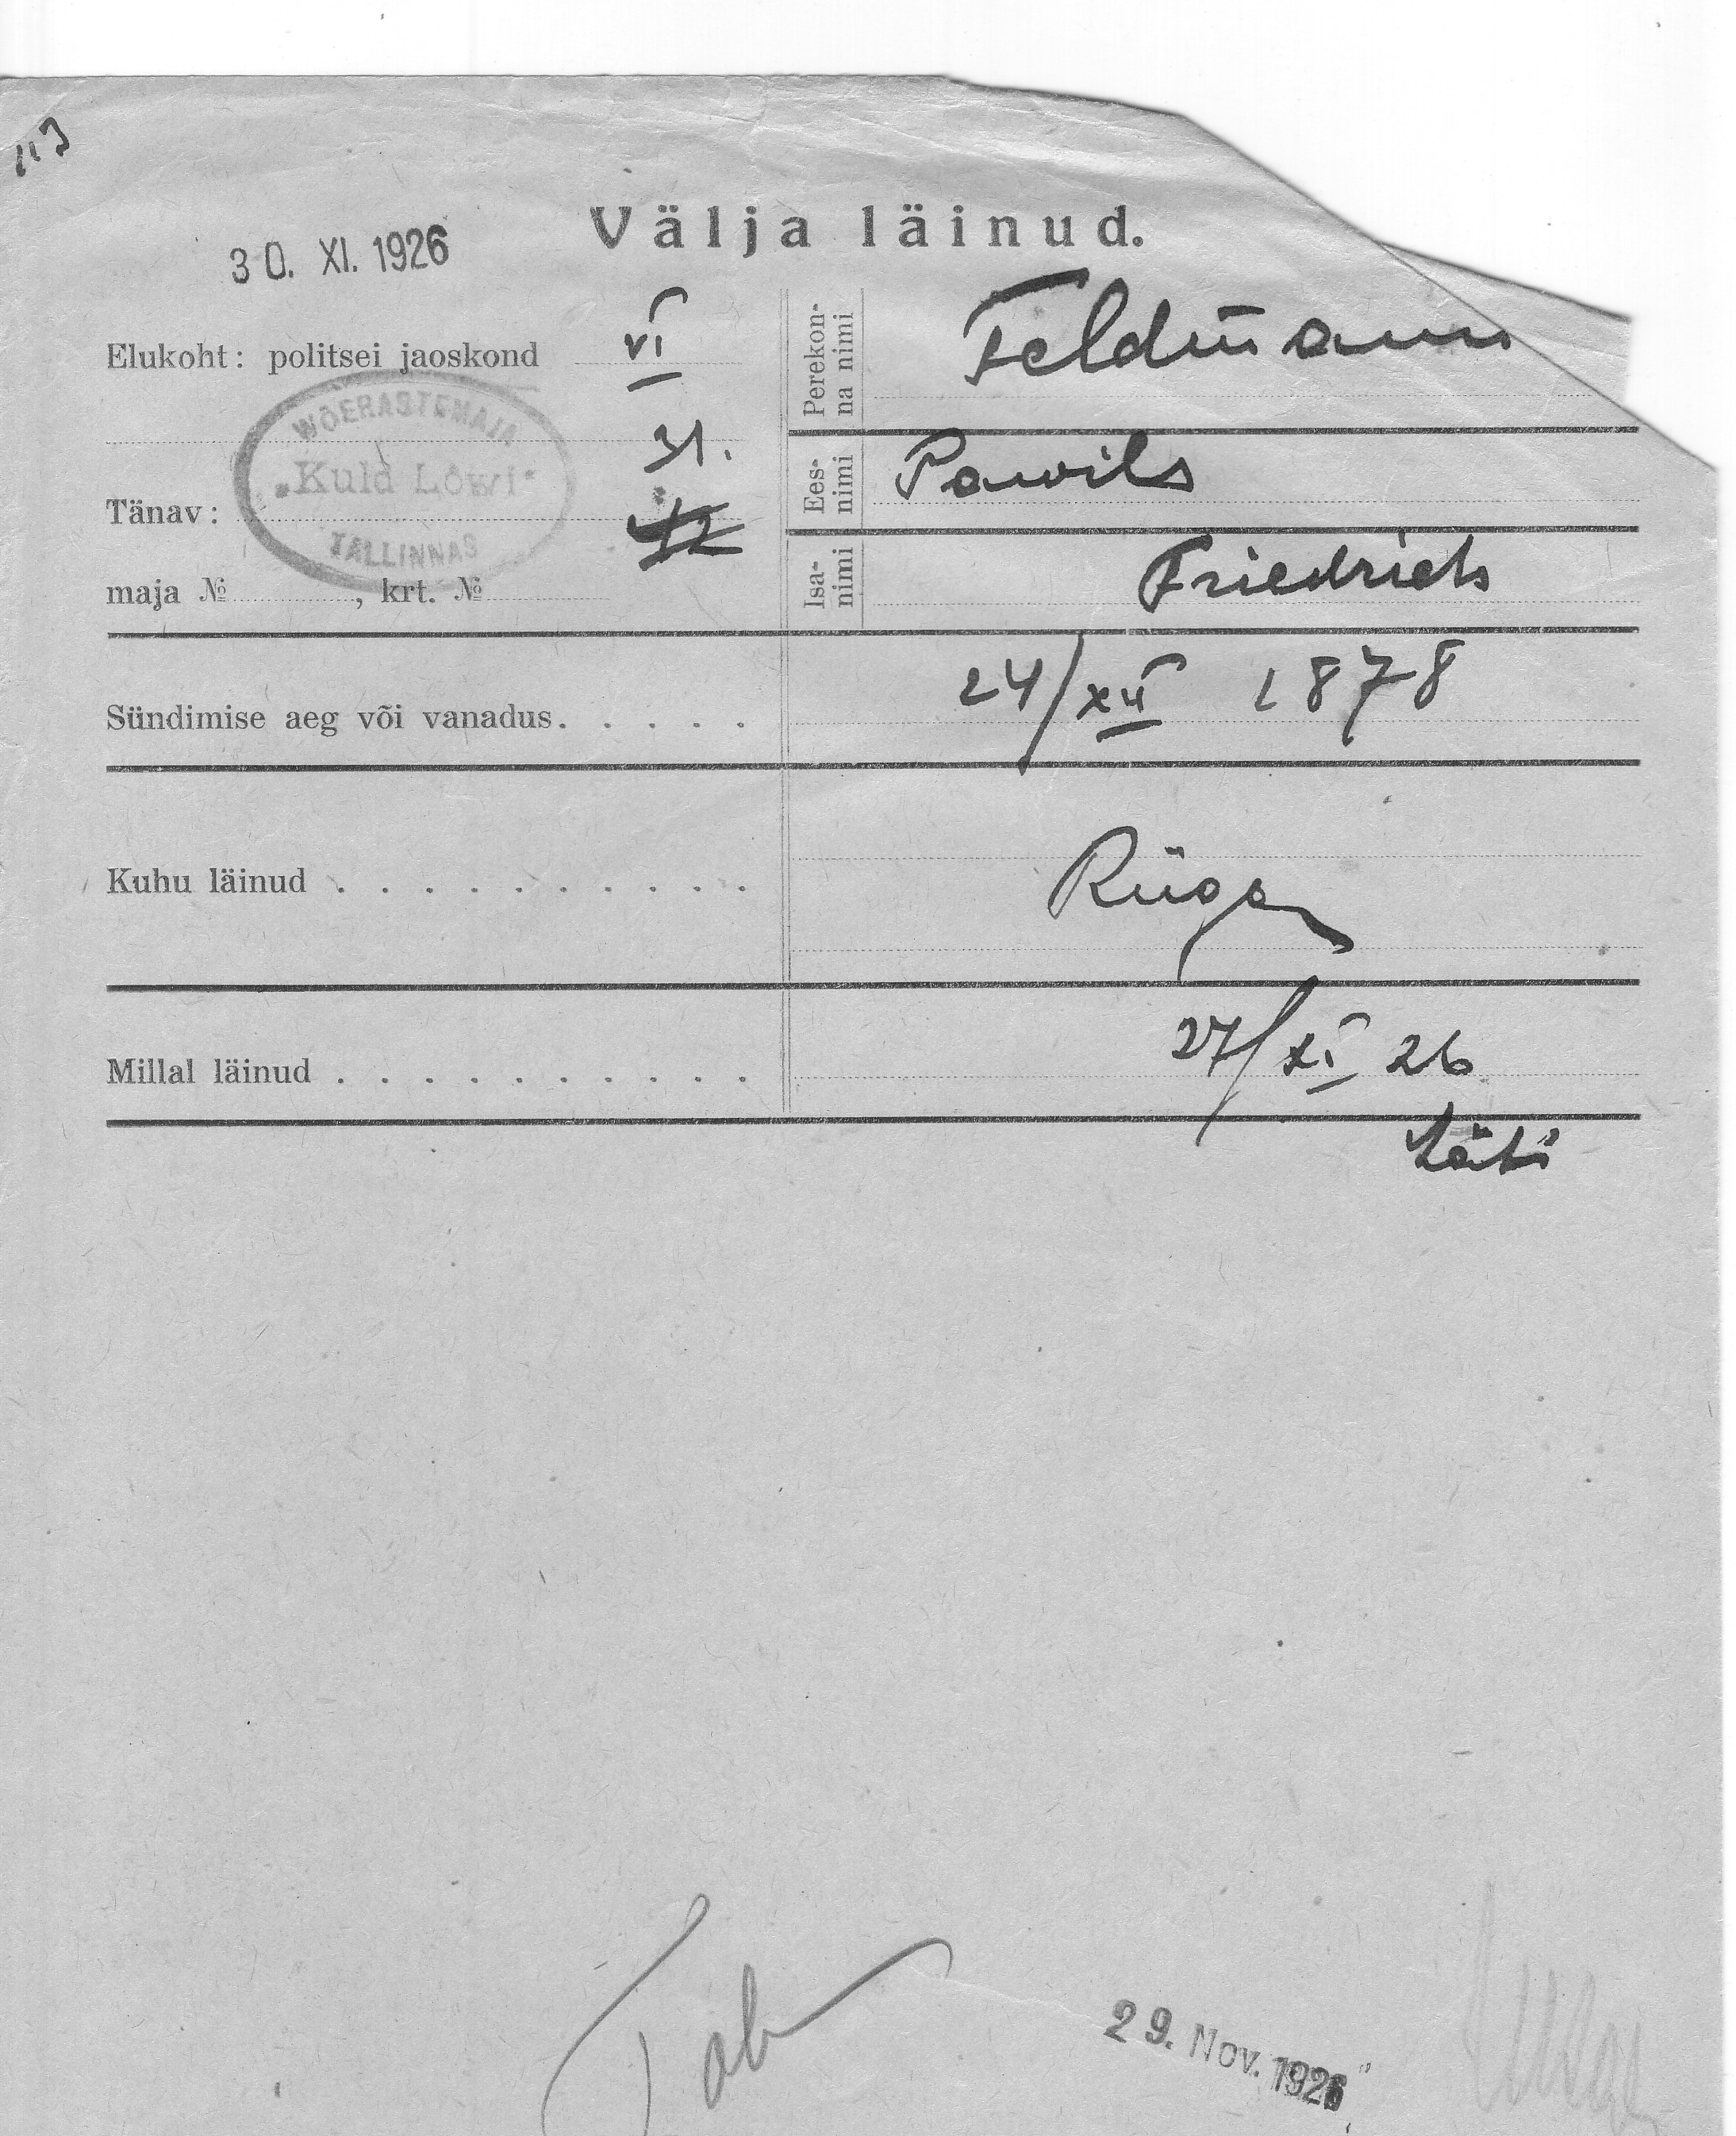 113
Välja läinud.
30. XI. 1926
Elukoht: politsei jaoskond VI
WÕERASTEMAJA
„Kuld Lõwi“
TALLINNAS
31.
Tänav: 42
maja №, krt. №
Perekon-
na nimi
Feldmann
Ees-
nimi
Pawils
Isa-
nimi
Friedrich
Sündimise aeg või vanadus. . . . . 24/XII 1878
Kuhu läinud . . . . . . . . . . Riiga
Millal läinud . . . . . . . . . . 27/XI 26
Läti
29. Nov. 1926